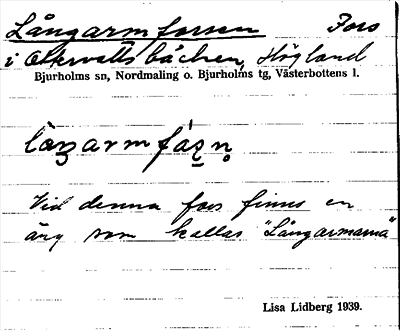 Långarmforsen Fors
i Ottervattsbäcken, Högland
Bjurholms sn, Nordmaling o. Bjurholms tg, Västerbottens l.
Vid denna fors finns en
äng som kallas "Långarmarna"
Lisa Lidberg 1939.